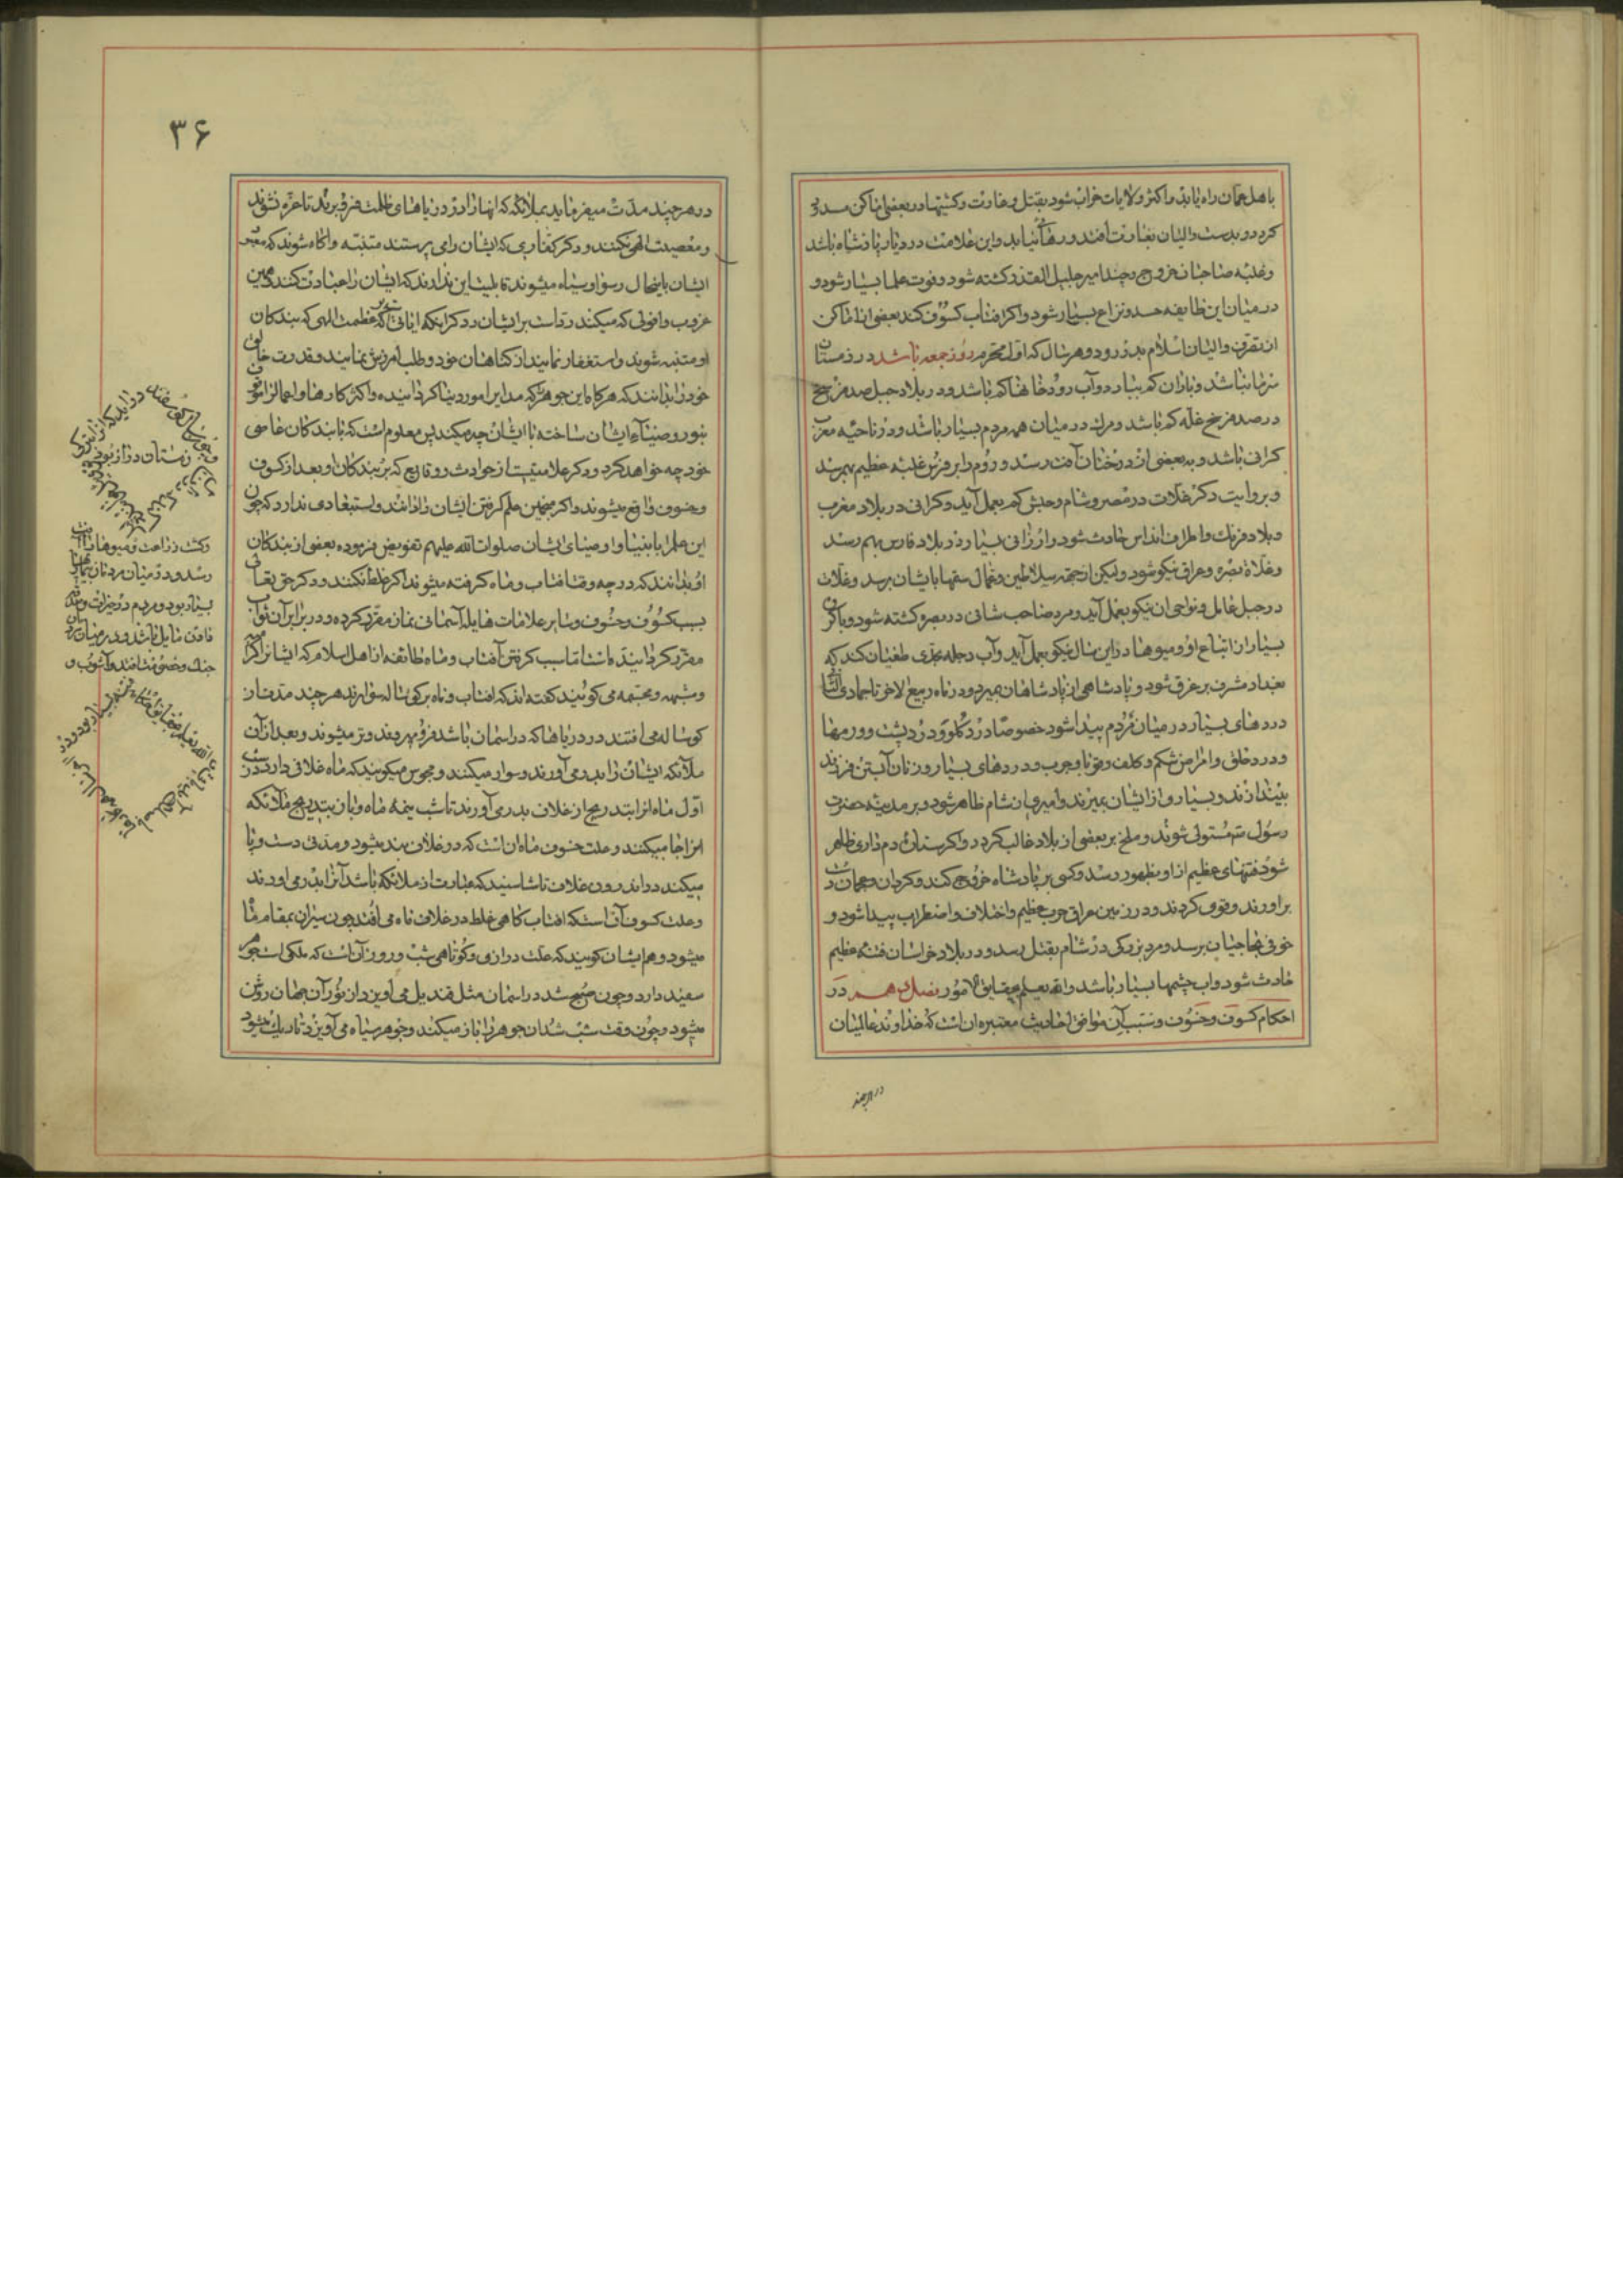 باهل عمان راه یابد و اکثر ولایات خراب شود بقتل و غارت و کشتیها در بعضی اماکن
کردد و بدست والیان بغارت افتد و رها نیابد و این علامت در دیار پادشاه باشد
و غلبه صاحبان خروج و چند امیر جلیل القدر کشته شود و فوت علما بسیار شود و
در میان این طایفه حسد و نزاع بسیار شود و اکر افتاب کسوف کند بعضی از اماکن
از تصرف والیان اسلام بدر رود و هر سال که اول محرم روز جمعه باشد در زمستان
سرما نباشد و باران کم ببارد و آب رودخانها کم باشد و در بلاد جبل صد فرسخ
در صد فرسخ غله کم باشد و مرك در میان همه مردم بسیار باشد و در ناحیه مغرب
کرانی باشد و به بعضی از درختان آفت رسد و روم را بر فرس غلبه عظیم بهم رسد
و بروایت دکر غلات در مصر و شام و حبش کم بعمل آید و کرانی در بلاد مغرب
و بلاد فرنك و اطراف اندلس حادث شود و ارزانی بسیار در بلاد فارس بهم رسد
و غلاة بصره و عراق نیکو شود و لیکن از جهة سلاطین و عمال ستمها بایشان برسد و غلات
در جبل عامل و نواحی ان نیکو بعمل آید و مرد صاحب شانی در بصره کشته شود و با کروهی
بسیار از اتباع او و میوها در این سال نیکو بعمل آید و آب دجله بحدی طغیان کند که
بغداد مشرف بر غرق شود و پادشاهی از پادشاهان بمیرد و در ماه ربیع الاخر تا جمادی الثانی
دردهای بسیار در میان مردم پیدا شود خصوصا درد کلو و درد پشت و ورمها
و درد حلق و امراض شکم و کلف و قوبا و جرب و دردهای بسیار و زنان آبستن فرزند
بیندازند و بسیار و از ایشان بمیرند و امیری از شام ظاهر شود و بر مدینه حضرت
رسول ص مستولی شوند و ملخ بر بعضی از بلاد غالب کردد و اکر ستاره دم داری ظاهر
شود فتنهای عظیم از او بظهور رسد و کسی بر پادشاه خروج کند و کردان و عجمان
براورند و قوی کردند و در زمین عراق حرب عظیم و اختلاف و اضطراب پیدا شود و
خوفی بحاجیان برسد و مرد بزرکی در شام بقتل رسد و در بلاد خراسان فتنه عظیم
حادث شود و اب چشمها بسیار باشد والله یعلم بحقایق الامور فصل در
احکام کسوف و خسوف و سبب آن موافق احادیث معتبره ان است که خداوند عالمیان
در هر چند
۳۶
در هر چند مدت میفرماید بملائکه که انها را در دریاهای ظلمت فرو برند تا غره نشوند
و معصیت الهی نکنند و دکر کفاری که ایشان را می پرستند متنبه و اکاه شوند که
ایشان باینحال رسوا و سیاه میشوند قابلیت این ندارند که ایشان را عبادت کنند
غروب و افولی که میکنند رد است بر ایشان و دکر اینکه عظمت الهی که بندکان
او متنبه شوند و استغفار نمایند از کناهان خود و طلب آمرزش نمایند و قدرت خالق
خود را بدانند که هرکاه این جوهر که مدار این امور دنیا کردانیده و اکثر کارها و اعمال را
بنور و ضیاء ایشان ساخته با ایشان چه میکند پس معلوم است که با بندکان عاصی
خود چه خواهد کرد و دکر علامتیست از حوادث و وقایع که بر بندکان او بعد از کسوف
و خسوف واقع میشوند و اکر منجمین علم کرفتن ایشان را دانند و استبعادی ندارد که چون
این علم را بانبیا و اوصیای ایشان صلوات الله علیهم تفویض فرموده بعضی از بندکان
او بدانند که در چه وقت افتاب و ماه کرفته میشوند اکر غلط نکنند و دکر حق تعالی
بسبب کسوف و خسوف و سایر علامات هایله آسمانی نماز مقرر کرده و در برابر آن ثواب
مقرر کردانیده است اما سبب کرفتن آفتاب و ماه طائفه از اهل اسلام که ایشانرا
و مشبهه و مجسمه می کویند کفته اند که افتاب و ماه بر کوساله سوارند هر چند مدت از
کوساله می افتند در دریاها که در اسمان باشد فرو میروند و تر میشوند و بعد از آن
ملائکه ایشان را بدر می آورند و سوار میکنند و مجوس میکویند که ماه غلافی دارد
اول ماه انرا بتدریج از غلاف بدر می آورند تا شب نیمه ماه و باز بتدریج ملائکه
انرا جا میکنند و علت خسوف ماه ان است که در غلاف بند میشود و مدتی دست و پا
میکند در اندرون غلاف تا
و علت کسوف آن است که افتاب کاهی غلط در غلاف ماه می افتد چون میزان بمقام
میشود و هم ایشان کویند که علت درازی و کوتاهی شب و روز آن است که ملکی است
سفید دارد و چون صبح شد در اسمان مثل قندیل می آویزد از نور آن جهان روشن
میشود و چون وقت شب شد ان جوهر را باز میکند و جوهر سیاه می آویزد تا تاریك میشود
زمستان دراز بود
و کشت و زراعت و میوها را آفت
رسد و در میان مردمان بیماری
بسیار بود و مردم در
مایل باشد و در میان
جنك و خصومت افتد و آشوب و